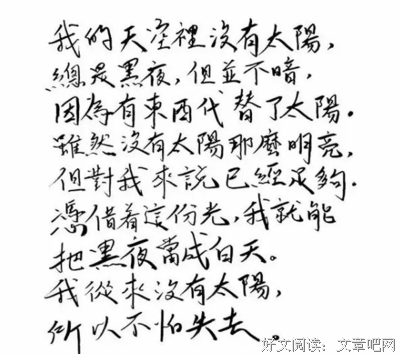 我的天空裡沒有太陽，
總是黑夜，但並不暗，
因為有東西代替了太陽。
雖然沒有太陽那麼明亮，
但對我來說已經足夠．
憑借着這份光，我就能
把黑夜當成白天。
我從來沒有太陽，
所以不怕失去。
好文阅读：文章吧网